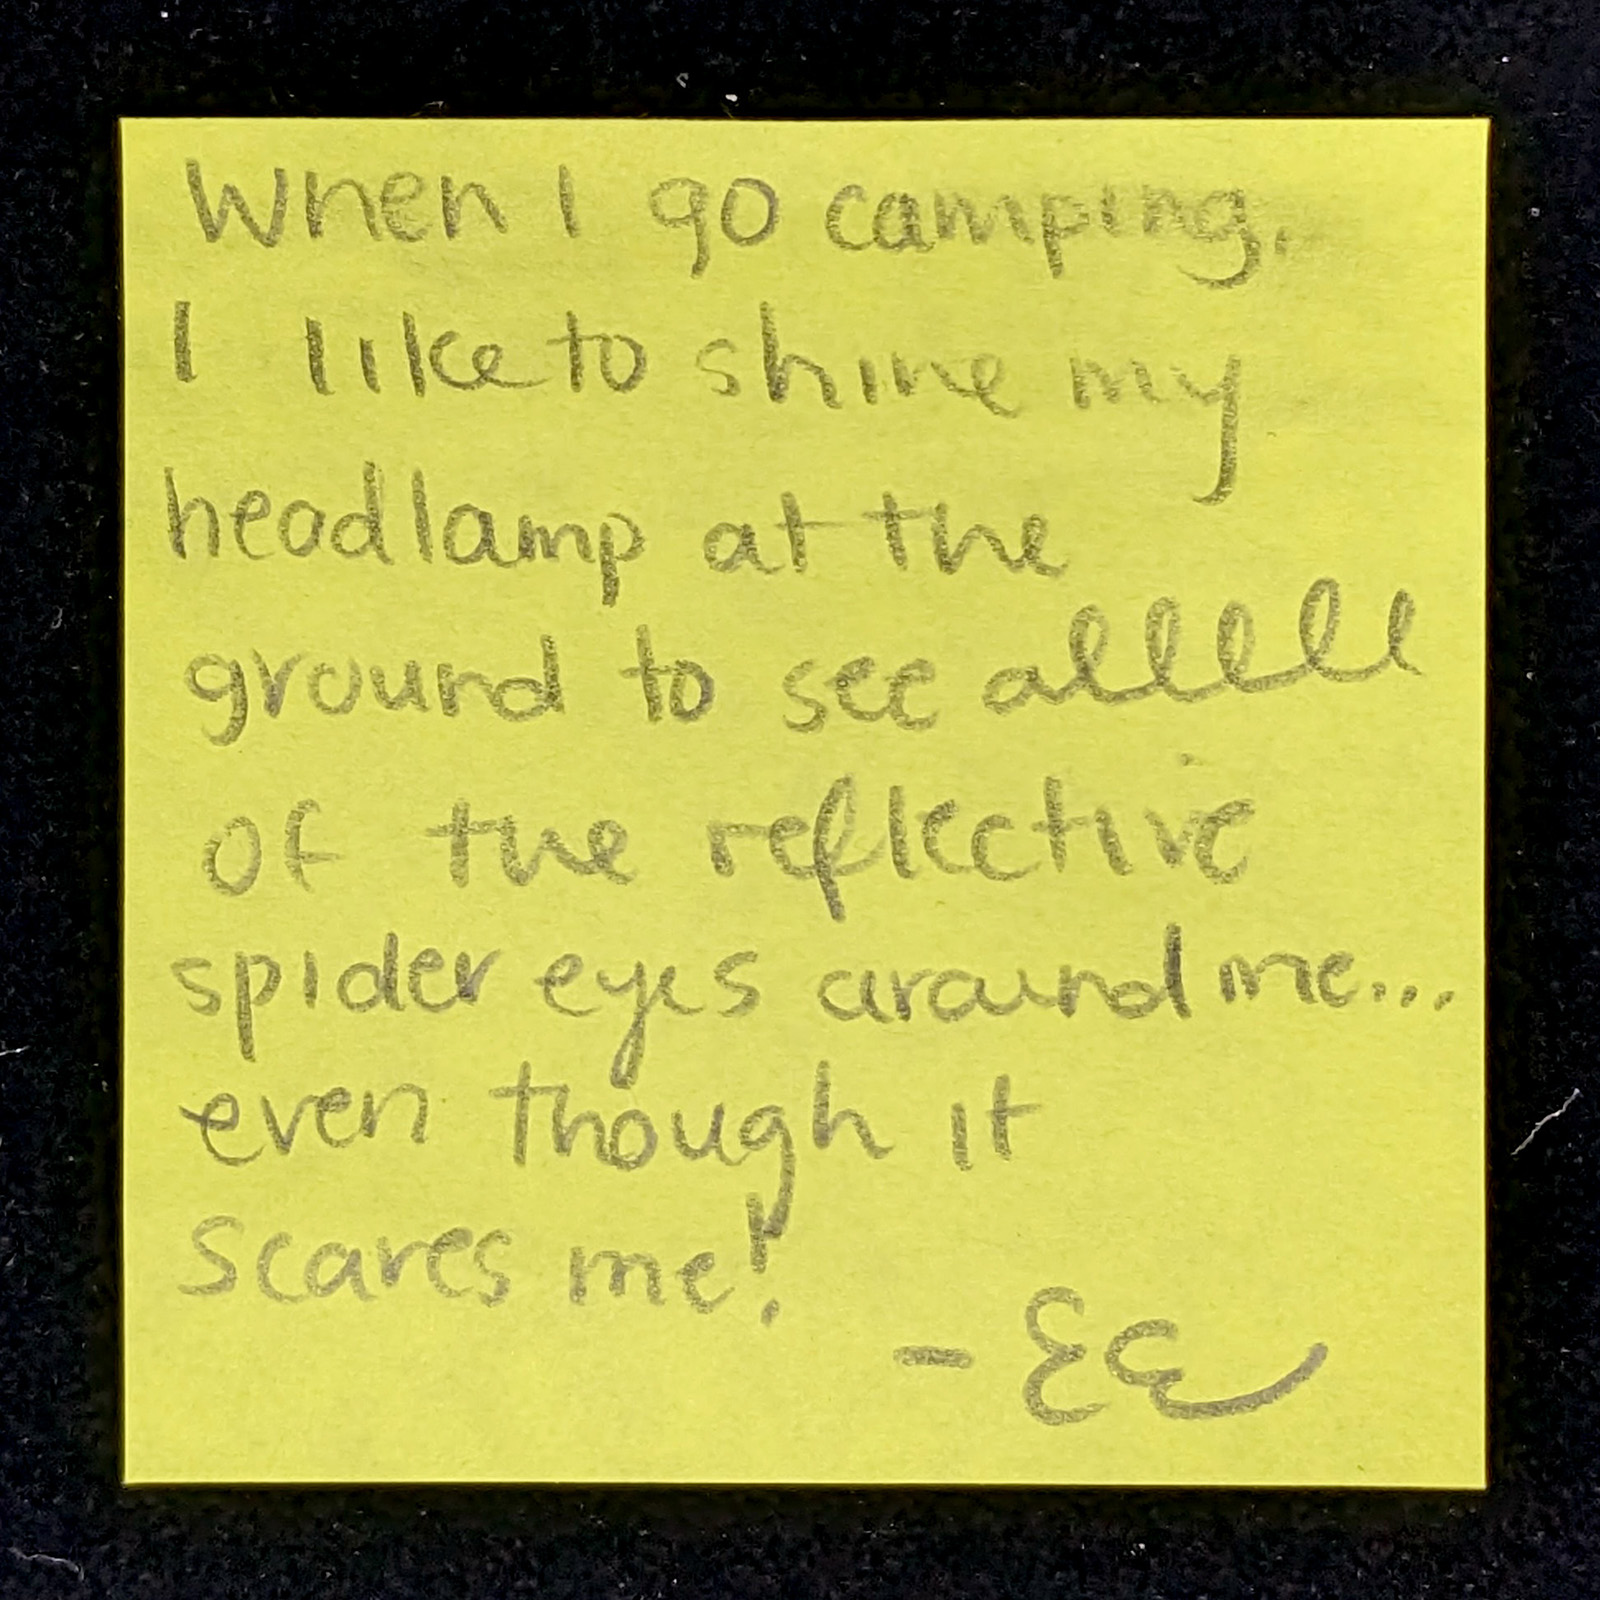 When I go camping,
I like to shine my
headlamp at the
ground to see allllll
of the reflective
spider eyes around me...
even though it
scares me!
- EE